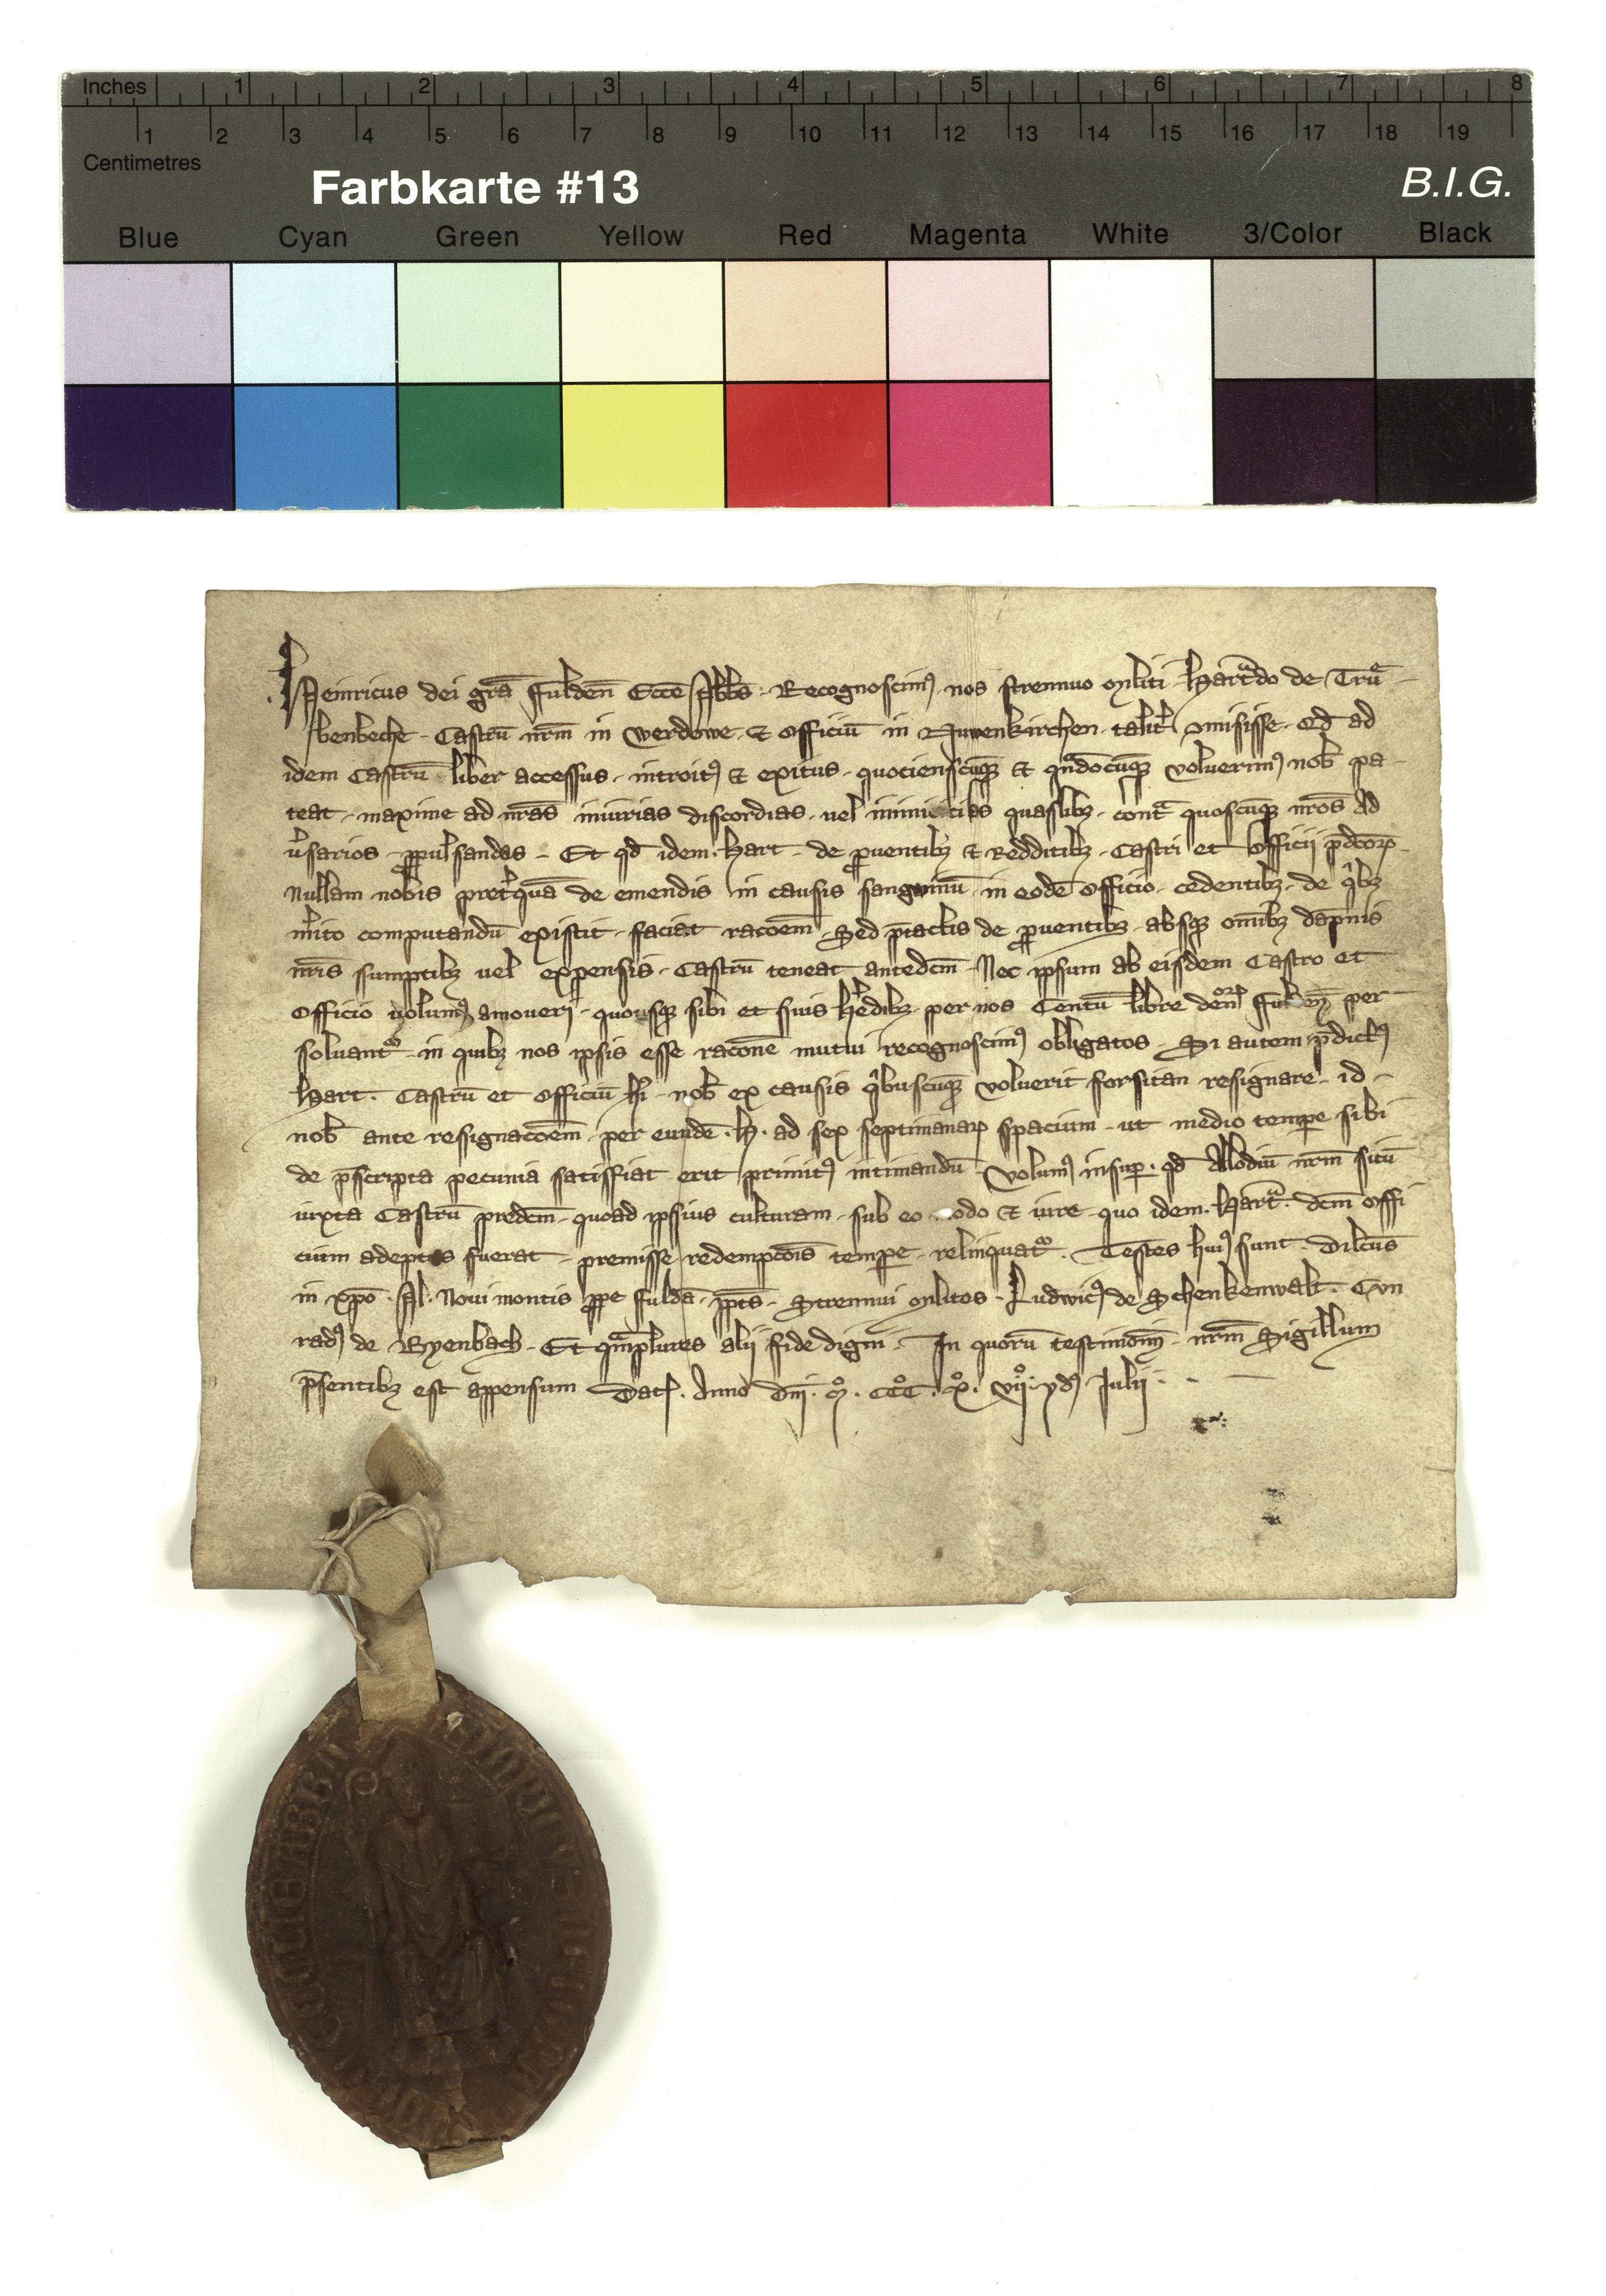 Inches 1 2 3 4 5 6 7 8
1 2 3 4 5 6 7 8 9 10 11 12 13 14 15 16 17 18 19
Centimetres
Farbkarte #13 B.I.G.
Blue Cyan Green Yellow Red Magenta White 3/Color Black
Heinricus dei gr̄a ffulden̄ Eccē Abb̄s · Recognoscimꝯ nos strennuo mīliti Hartͣdo de Truͤ-
benbeche · Castrū nr̄m in Werdowe · et Officiū in Nuwenkirchen · talit̄ ꝯmisisse · Qd̄ ad
idem Castrū liber accessus · introitꝯ et exitus · quotienscūqꝫ et qn̄docūqꝫ voluerimꝯ nob̄ pa-
teat · maxime ad nr̄as iniurias discordias · uel inimicicias quaslibꝫ · contͣ quoscūqꝫ nr̄os Ad
ūsarios · ꝓpulsandas · Et qd̄ idem · Hart · de ꝓuentibꝫ et Redditibꝫ · Castri et Officii p̄dcōꝝ
Nullam nobis pret̄quā de emendis in causis sanguinū in eodē officio · cedentibꝫ · de qͥbꝫ
m̄ito computandū existit · faciat racōem · Sed p̄tactis de ꝓuentibꝫ · absqꝫ om̄ibꝫ dāpnis
nr̄is sumptibꝫ uel expensis · Castrū teneat antedcm̄ · Nec ipsum ab eisdem Castro et
Officio uolumꝯ amoueri · quousqꝫ sibi et suis h̄edibꝫ · per nos Centū libre den̄oꝝ fulden̄ per
soluantͬ · in quibꝫ nos ipsis esse racōne mutui recognoscimꝯ obligatos · Si autem p̄dictꝯ
Hart · Castrū et officiū h̄i · nob̄ ex causis qͥbuscūqꝫ voluerit forsitan resignare · id -
nob̄ ante resignacōem · per eundē · H · ad sex septimanaꝝ spacium · ut medio temꝑe sibi
de p̄scripta pecunia satisfiat · erit primitꝯ intimandū · Volumꝯ insuꝑ · qd̄ Allodiū nr̄m sitū
iuxta Castrū predcm̄ · quoad ipsius culturam · sub eo odo et iure · quo idem · Hartͣ · dcm̄ offi
cium adeptus fuerat · premisse redempcōis temꝑe · relinquatͬ · Testes huiꝯ sunt · Dilcūs
in xp̄o · Al · Noui montis ꝓpe fuldā · ꝓpt̄s · Strennui mīlites · Ludwicꝯ de Schenkenwalt · Cun
radꝯ de Byenbach · Et qͣmplures alii fide digni · In quorū testimoniū · nr̄m Sigillum
p̄sentibꝫ est appensum Dat · Anno Dn̄i · M̊ · CCC̊ · X̊ · vij̊ · ydꝯ Julij ·